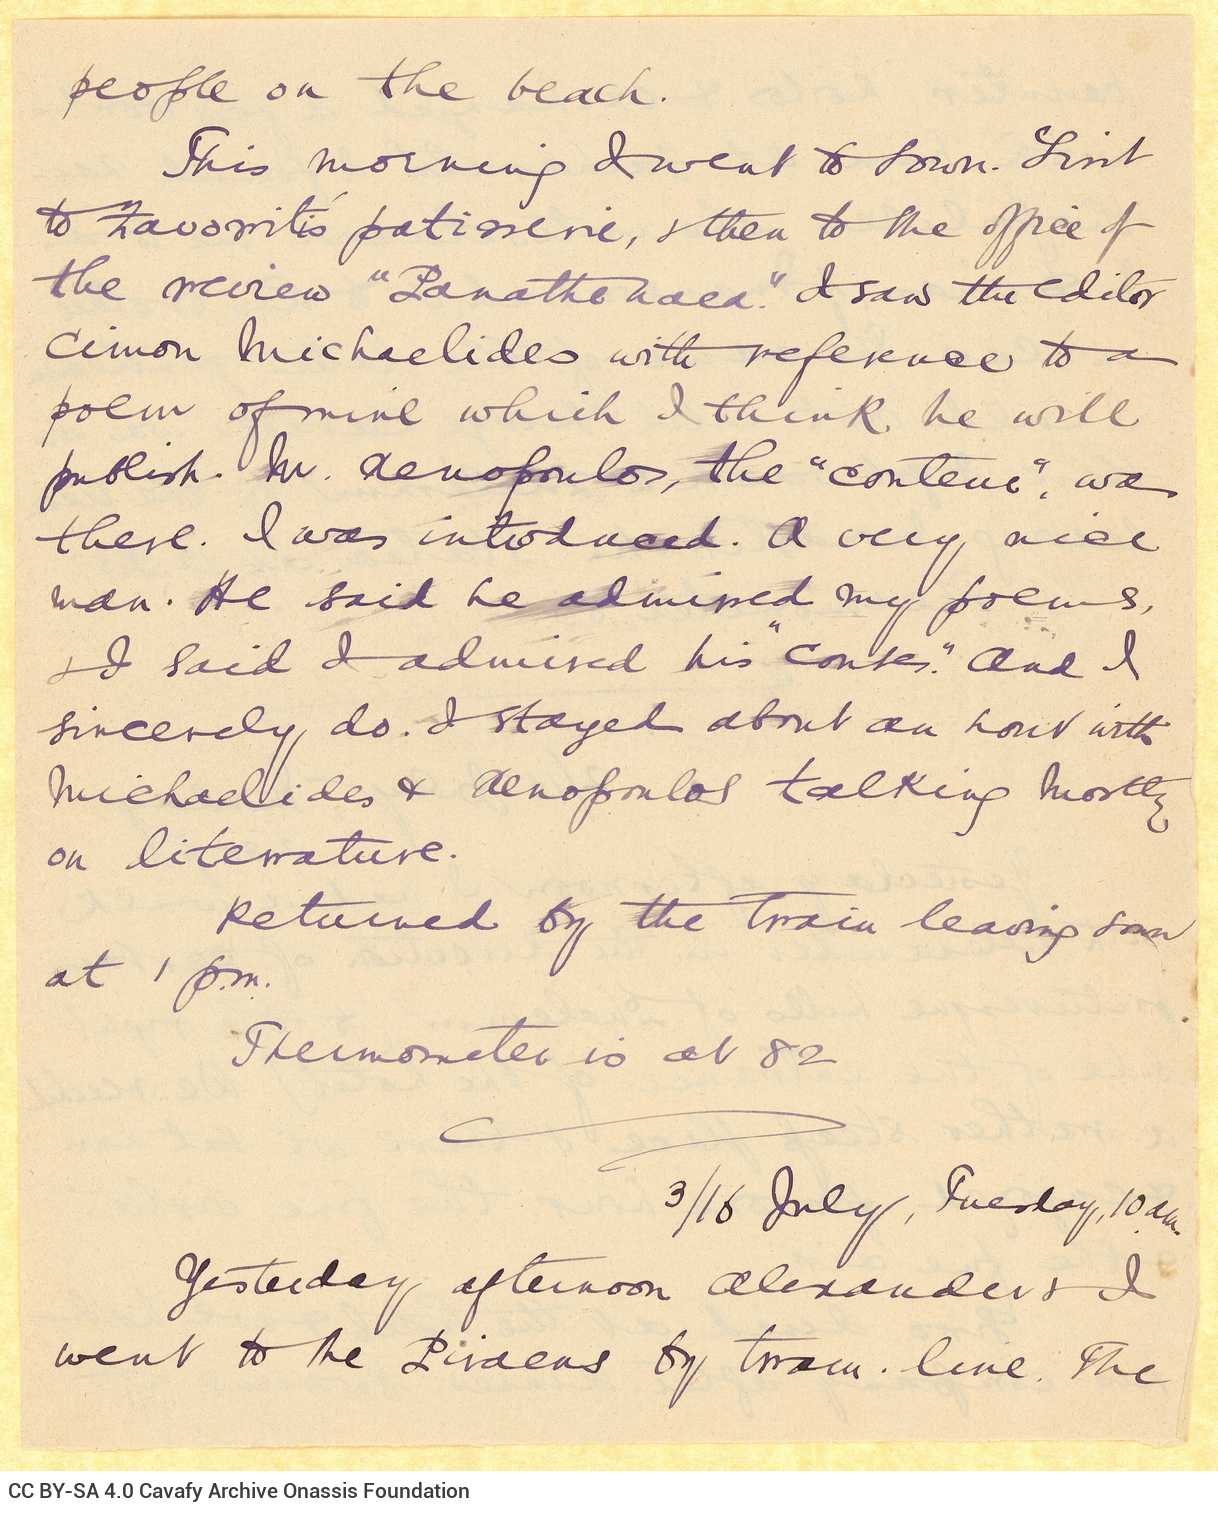 people on the beach.
This morning I went to town. First
to Zavoriti's patisserie, & then to the office of
the review "Panathenaea." I saw the editor
Cimon Michaelides with reference to a
poem of mine which I think he will
publish. M. Xenopoulos, the "conteur", was
there. I was introduced. A very nice
man. He said he admired my poems,
& I said I admired his "contes." And I
sincerely do. I stayed about an hour with
Michaelides & Xenopoulos talking mostly
on literature.
Returned by the train leaving town
at 1 p.m.
Thermometer is at 82
3/16 July, Tuesday, 10 a.m.
Yesterday afternoon Alexander & I
went to the Piraeus by tram-line. The
CC BY-SA 4.0 Cavafy Archive Onassis Foundation